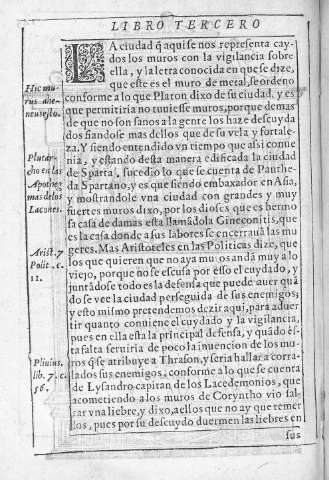 LIBRO TERCERO
LA ciudad q̃ aqui se nos representa cay-
dos los muros con la vigilancia sobre
ella, y la letra conocida en que se dize,
que este es el muro de metal, se ordeno
conforme a lo que Platon dixo de su ciudad, y es
que permitiria no tuuiesse muros, porque demas
de que no son sanos a la gente los haze descuyda
dos fiandose mas dellos que de su vela y fortale-
za. Y siendo entendido vn tiempo que assi conue
nia, y estando desta manera edificada la ciudad
de Sparta, sucedio lo que se cuenta de Panthe-
da Spartano, y es que siendo embaxador en Asia,
y mostrandole vna ciudad con grandes y muy
fuertes muros dixo, por los dioses que es hermo
sa casa de damas esta llamãdola Gineconitis, que
es la casa donde a sus labores se encerrauã las mu
geres. Mas Aristoteles en las Politicas dize, que
los que quieren que no aya muros andã muy a lo
viejo, porque no se escusa por esso el cuydado, y
juntãdose todo es la defensa que puede auer quã
do se vee la ciudad perseguida de sus enemigos;
y esto mismo pretendemos dezir aqui, para aduer
tir quanto conuiene el cuydado y la vigilancia,
pues en ella esta la principal defensa, y quãdo es-
ta falta seruiria de poco la inuencion de los mu-
ros q̃ se atribuye a Thrason, y seria hallar acorra-
lados sus enemigos, conforme a lo que se cuenta
de Lysandro capitan de los Lacedemonios, que
acometiendo a los muros de Coryntho vio sal-
tar vna liebre, y dixo, a ellos que no ay que temer
los, pues por su descuydo duermen las liebres en
sus
Hic mu-
rus
Plutar-
cho en las
Apotheg
mas de los
Lacones.
Arist. 7
Polit. c.
11.
Plinius.
lib. 7. c.
56.